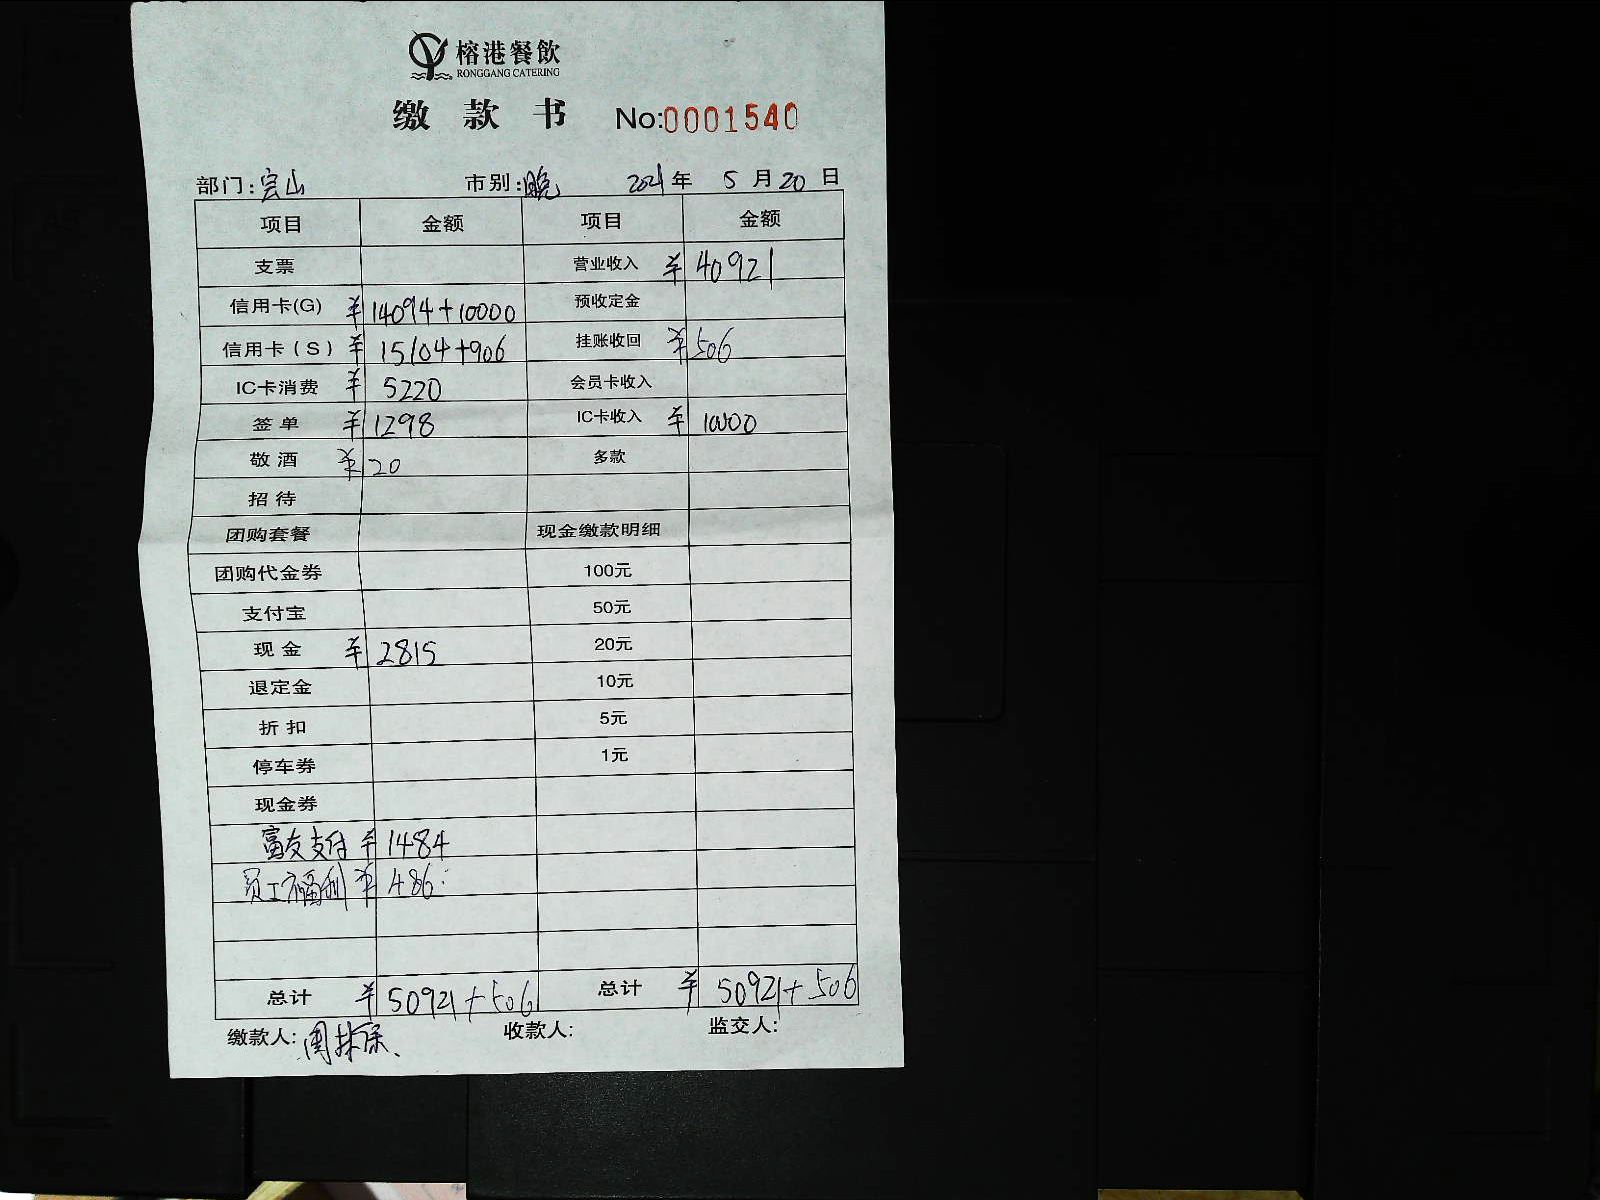 榕港餐飲
RONGGANG CATERING
缴 款 书 No:0001540
部门:宝山 市别:晚 2021年 5月20日
项目 金额 项目 金额
支票 营业收入 ¥40921
信用卡(G) ¥14094+10000 预收定金
信用卡(S) ¥15104+906 挂账收回 ¥506
IC卡消费 ¥5220 会员卡收入
签单 ¥1298 IC卡收入 ¥10000
敬酒 ¥20 多款
招待
团购套餐 现金缴款明细
团购代金券 100元
支付宝 50元
现金 ¥2815 20元
退定金 10元
折扣 5元
停车券 1元
现金券
富友支付 ¥1484
员工福利 ¥486
总计 ¥50921+506 总计 ¥50921+506
缴款人: 收款人: 监交人: